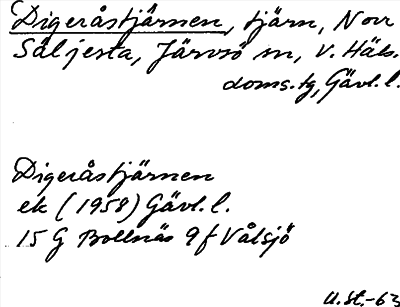 Digeråstjärnen, tjärn, Norr
Säljesta, Järvsö sn, V. Häls.
doms.tg, Gävl. l.
Digeråstjärnen
ek (1958) Gävl. l.
15 G Bollnäs 9 f Vålsjö
U. St. -63